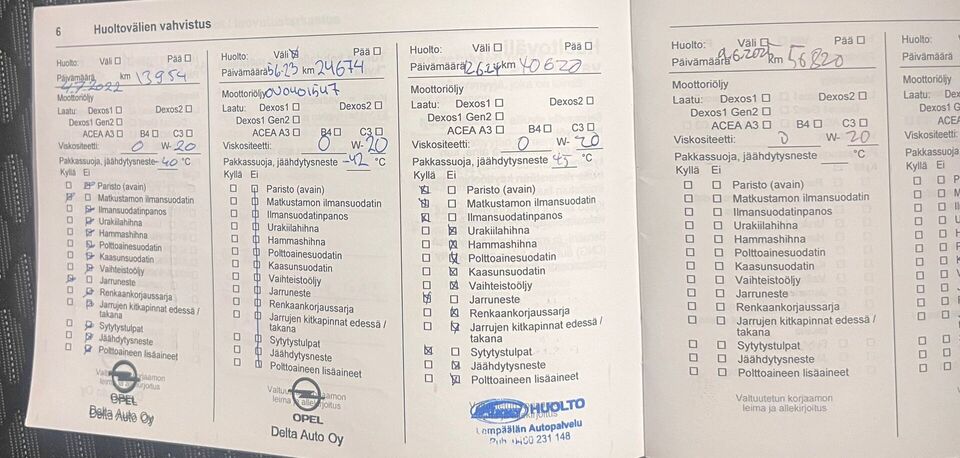 6 Huoltovälien vahvistus
Huolto: Väli ☐ Pää ☐
Päivämäärä km 13954
4.7.2022
Moottoriöljy
Laatu: Dexos1 ☐ Dexos2 ☐
Dexos1 Gen2 ☐
ACEA A3 ☐ B4 ☐ C3 ☐
Viskositeetti: 0 W- 20
Pakkassuoja, jäähdytysneste -40 °C
Kyllä Ei
Paristo (avain)
Matkustamon ilmansuodatin
Ilmansuodatinpanos
Urakiilahihna
Hammashihna
Polttoainesuodatin
Kaasunsuodatin
Vaihteistoöljy
Jarruneste
Renkaankorjaussarja
Jarrujen kitkapinnat edessä /
takana
Sytytystulpat
Jäähdytysneste
Polttoaineen lisäaineet
OPEL
Delta Auto Oy
Huolto: Väli ☒ Pää ☐
Päivämäärä 5.6.23 km 24674
Moottoriöljy 0V0401547
Laatu: Dexos1 ☐ Dexos2 ☐
Dexos1 Gen2 ☐
ACEA A3 ☐ B4 ☐ C3 ☐
Viskositeetti: 0 W- 20
Pakkassuoja, jäähdytysneste -42 °C
Kyllä Ei
Paristo (avain)
Matkustamon ilmansuodatin
Ilmansuodatinpanos
Urakiilahihna
Hammashihna
Polttoainesuodatin
Kaasunsuodatin
Vaihteistoöljy
Jarruneste
Renkaankorjaussarja
Jarrujen kitkapinnat edessä /
takana
Sytytystulpat
Jäähdytysneste
Polttoaineen lisäaineet
OPEL
Delta Auto Oy
Huolto: Väli ☐ Pää ☐
Päivämäärä 12.6.24 km 40620
Moottoriöljy
Laatu: Dexos1 ☐ Dexos2 ☐
Dexos1 Gen2 ☐
ACEA A3 ☐ B4 ☐ C3 ☐
Viskositeetti: 0 W- 20
Pakkassuoja, jäähdytysneste 45 °C
Kyllä Ei
Paristo (avain)
Matkustamon ilmansuodatin
Ilmansuodatinpanos
Urakiilahihna
Hammashihna
Polttoainesuodatin
Kaasunsuodatin
Vaihteistoöljy
Jarruneste
Renkaankorjaussarja
Jarrujen kitkapinnat edessä /
takana
Sytytystulpat
Jäähdytysneste
Polttoaineen lisäaineet
HUOLTO
Lempäälän Autopalvelu
Puh. 0400 231 148
Huolto: Väli ☐ Pää ☐
Päivämäärä 9.6.2025 km 56820
Moottoriöljy
Laatu: Dexos1 ☐ Dexos2 ☐
Dexos1 Gen2 ☐
ACEA A3 ☐ B4 ☐ C3 ☐
Viskositeetti: 0 W- 20
Pakkassuoja, jäähdytysneste °C
Kyllä Ei
Paristo (avain)
Matkustamon ilmansuodatin
Ilmansuodatinpanos
Urakiilahihna
Hammashihna
Polttoainesuodatin
Kaasunsuodatin
Vaihteistoöljy
Jarruneste
Renkaankorjaussarja
Jarrujen kitkapinnat edessä /
takana
Sytytystulpat
Jäähdytysneste
Polttoaineen lisäaineet
Valtuutetun korjaamon
leima ja allekirjoitus
Huolto:
Päivämäärä
Moottoriöljy
Laatu: Dexos1
Dexos1 G
ACEA
Viskositeetti:
Pakkassuoja,
Kyllä Ei